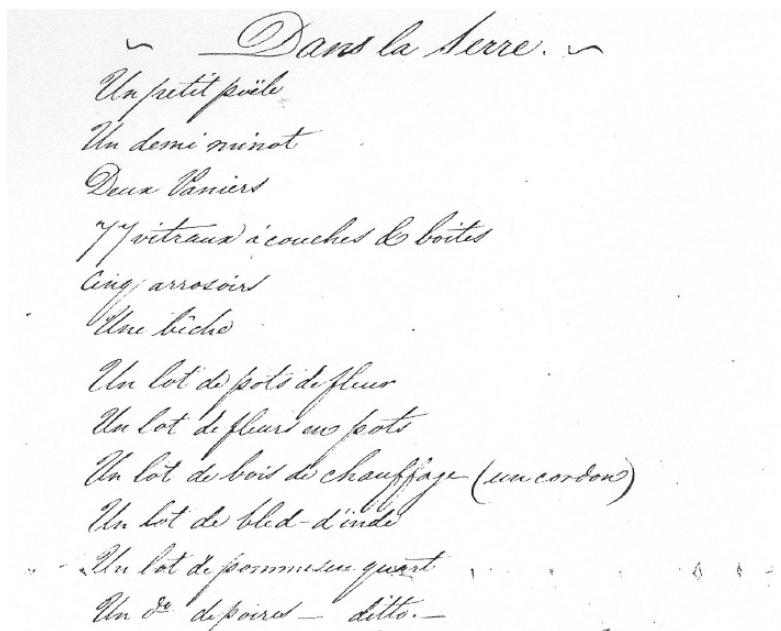 Dans la Serre.
Un petit poële
Un demi minot
Deux Paniers
77 vitraux à couches & boites
Cinq arrosoirs
Une bêche
Un lot de pots de fleur
Un lot de fleurs en pots
Un lot de bois de chauffage (un cordon)
Un lot de bled-d'inde
Un lot de pommes en quart
Un do de poires — ditto. —